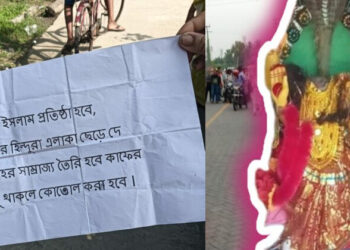 ইসলাম প্রতিষ্ঠা হবে,
র হিন্দুরা এলাকা ছেড়ে দে
হর সাম্রাজ্য তৈরি হবে কাফের
থাকলে কোতোল করা হবে ।